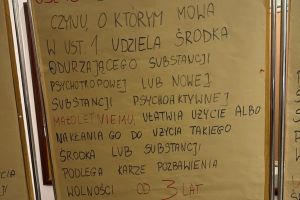 CZYNU, O KTÓRYM MOWA
W UST. 1 UDZIELA ŚRODKA
ODURZAJĄCEGO SUBSTANCJI
PSYCHOTROPOWEJ LUB NOWEJ
SUBSTANCJI PSYCHOAKTYWNEJ
MAŁOLETNIEMU, UŁATWIA UŻYCIE ALBO
NAKŁANIA GO DO UŻYCIA TAKIEGO
ŚRODKA LUB SUBSTANCJI
PODLEGA KARZE POZBAWIENIA
WOLNOŚCI OD 3 LAT